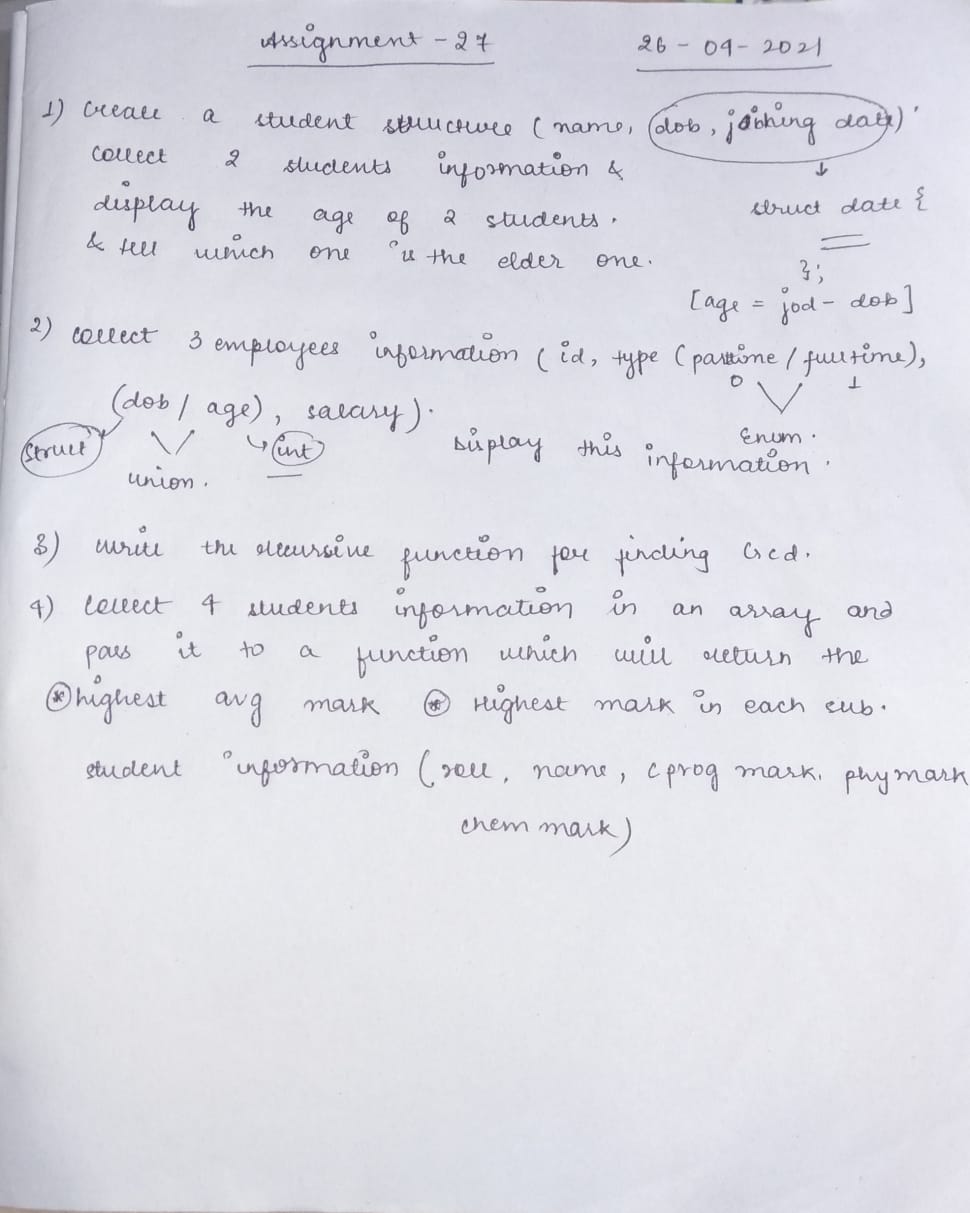 Assignment - 27 26-04-2021
1) Create a student structure (name, dob, joining date)
collect 2 students information &
display the age of 2 students.
& tell which one is the elder one.
struct date {
};
[age = jod - dob]
2) collect 3 employees information (id, type (parttime / fulltime),
0 1
Enum.
(dob / age), salary).
struct int
union.
Display this information.
3) write the recursive function for finding Gcd.
4) Collect 4 students information in an array and
pass it to a function which will return the
* highest avg mark * Highest mark in each sub.
student information (roll, name, cprog mark, phy mark
chem mark)